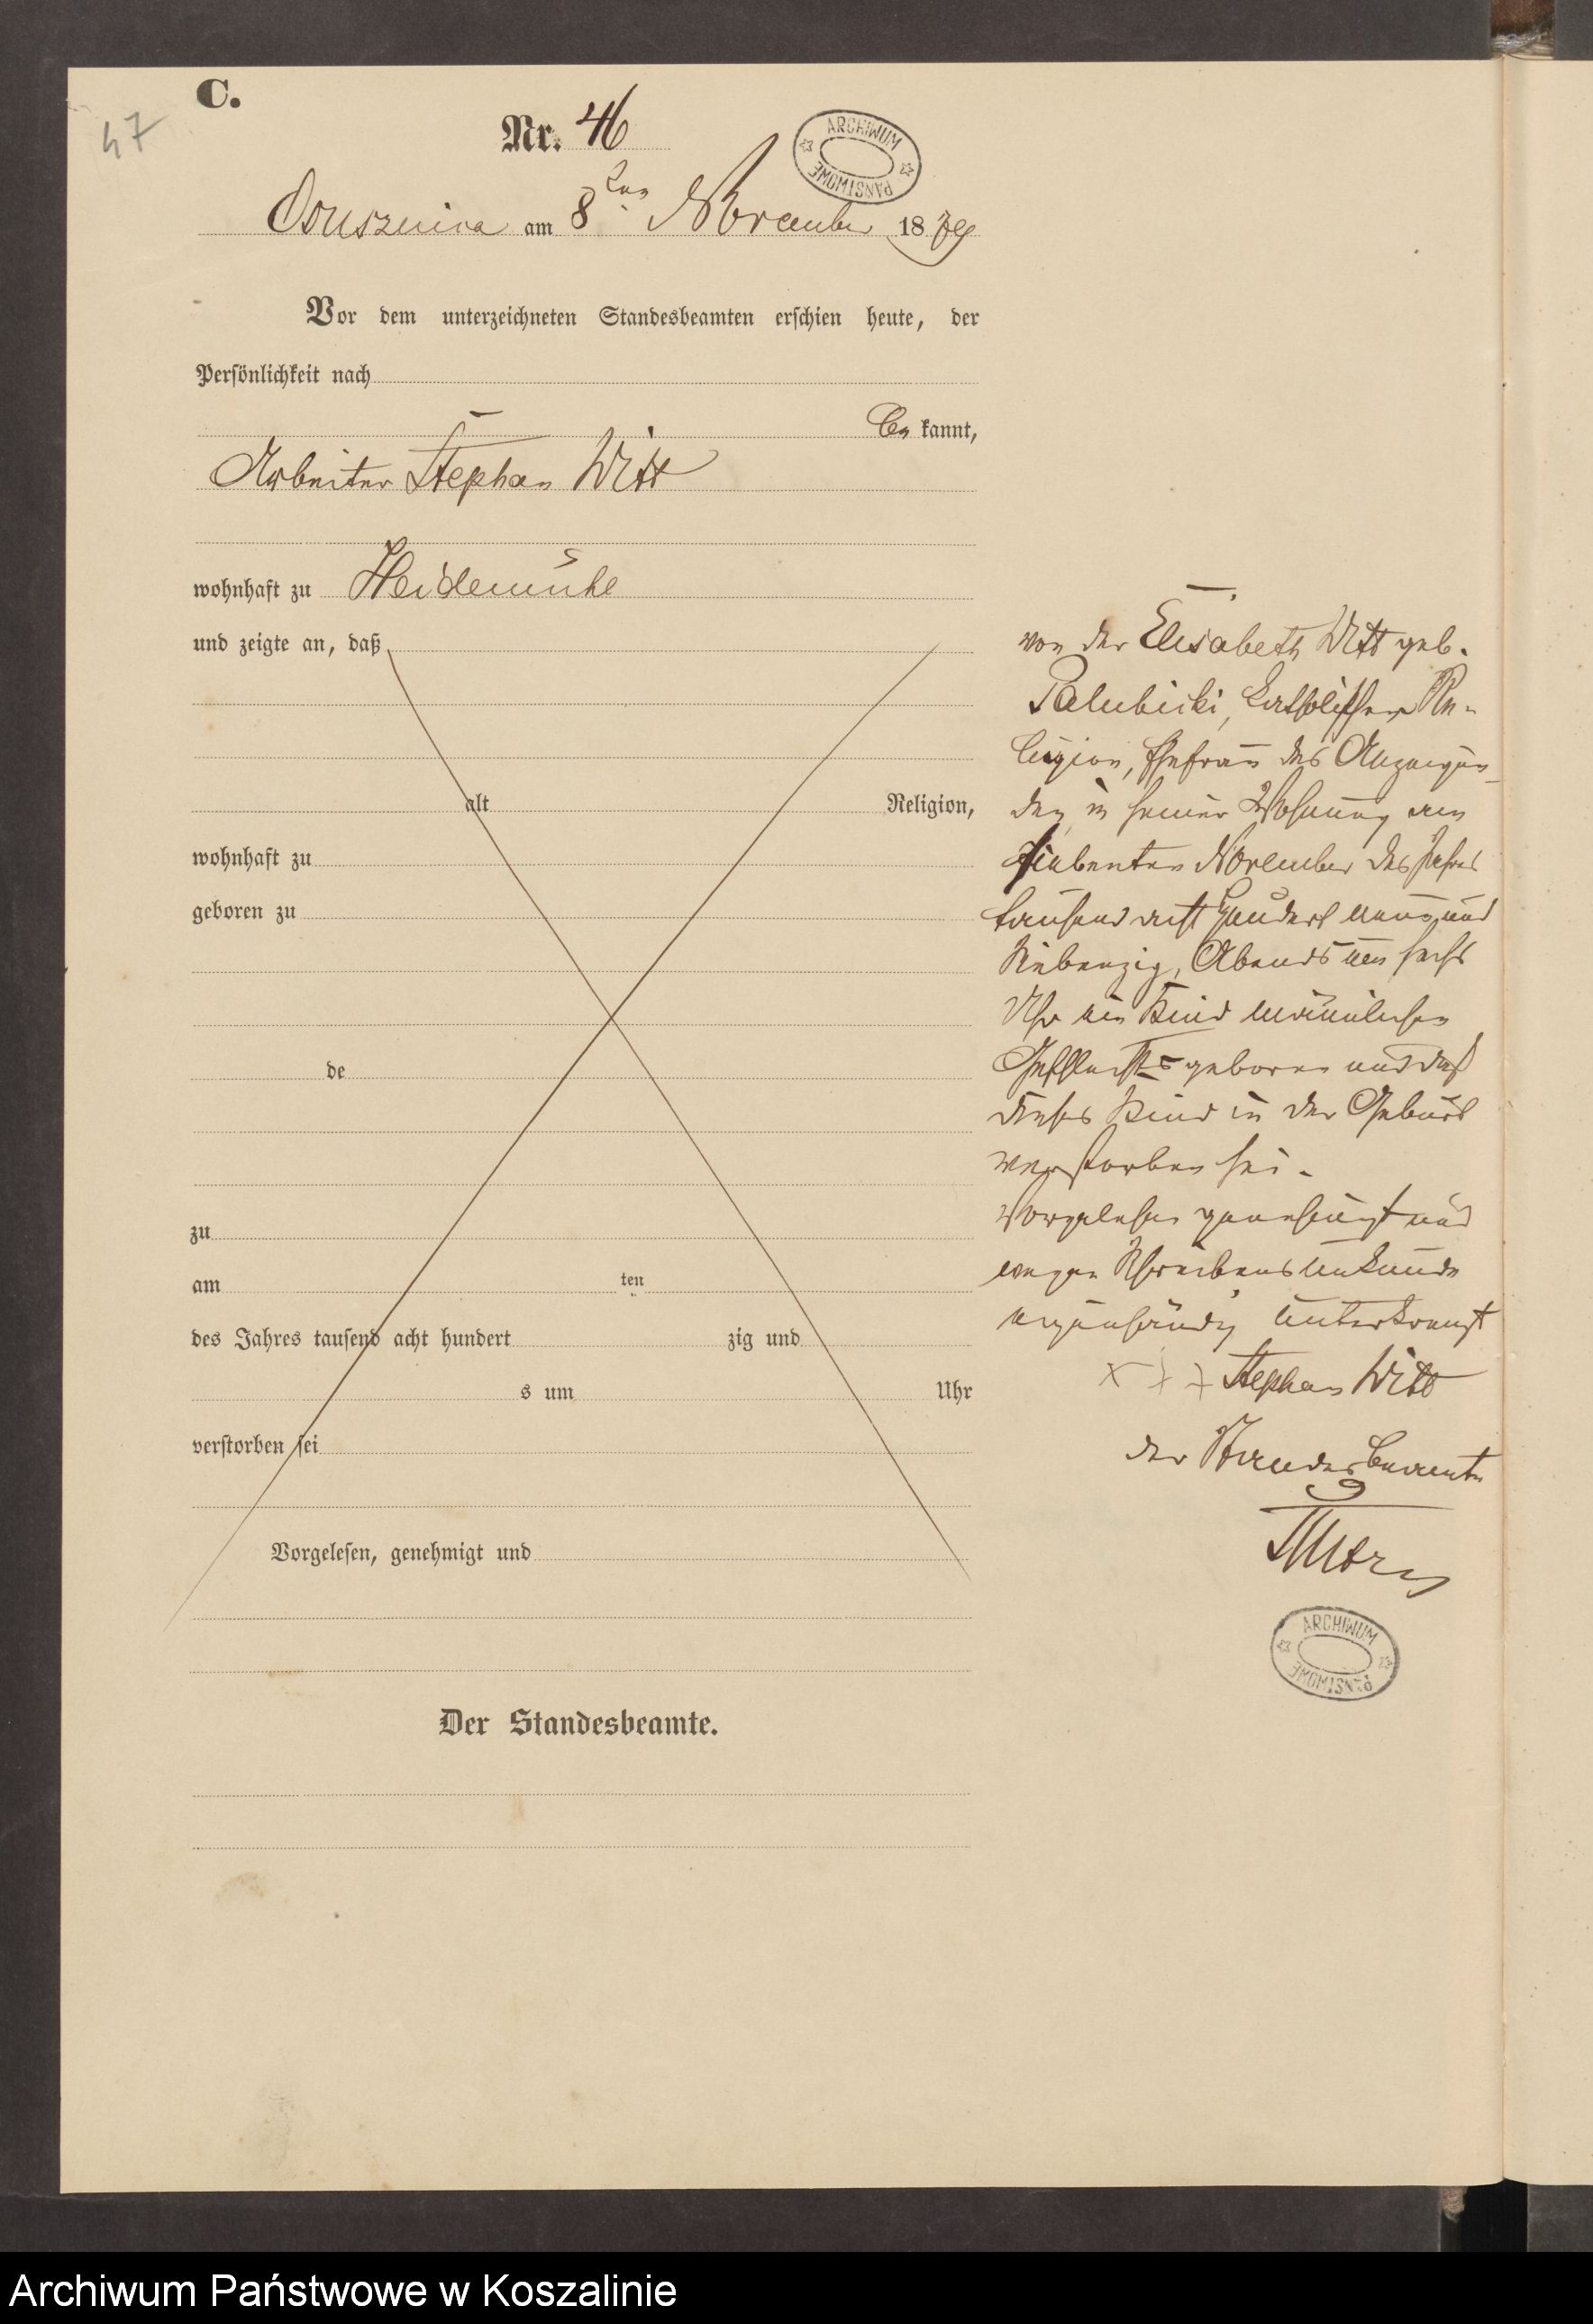 C.
47
Nr. 46
ARCHIWUM PAŃSTWOWE
Osusznica am 8ten November 1879
Vor dem unterzeichneten Standesbeamten erschien heute, der
Persönlichkeit nach
be kannt,
Arbeiter Stephan Witt
wohnhaft zu Heidemühl
und zeigte an, daß
alt Religion,
wohnhaft zu
geboren zu
de
zu
am ten
des Jahres tausend acht hundert zig und
s um Uhr
verstorben sei
Vorgelesen, genehmigt und
Der Standesbeamte.
von der Elisabeth Witt geb.
Palubicki, katholischer Re-
ligion, Ehefrau des Anzeigen-
den, in seiner Wohnung am
siebenten November des Jahres
tausend acht hundert neun und
siebenzig, Abends um sechs
Uhr ein Kind männlichen
Geschlechts geboren und daß
dieses Kind in der Geburt
verstorben sei.
Vorgelesen genehmigt und
wegen Schreibensunkunde
eigenhändig unterkreuzt
+ + + Stephan Witt
der Standesbeamte
ARCHIWUM PAŃSTWOWE
Archiwum Państwowe w Koszalinie